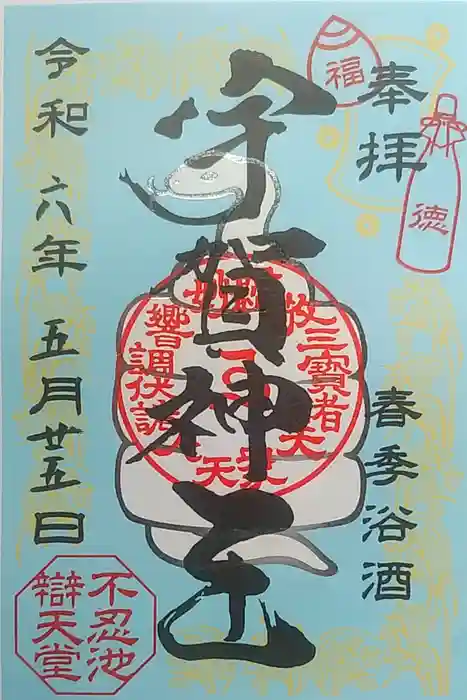 奉拝
福
徳
春季浴酒
宇賀神王
令和六年五月廿五日
不忍池
辯天堂